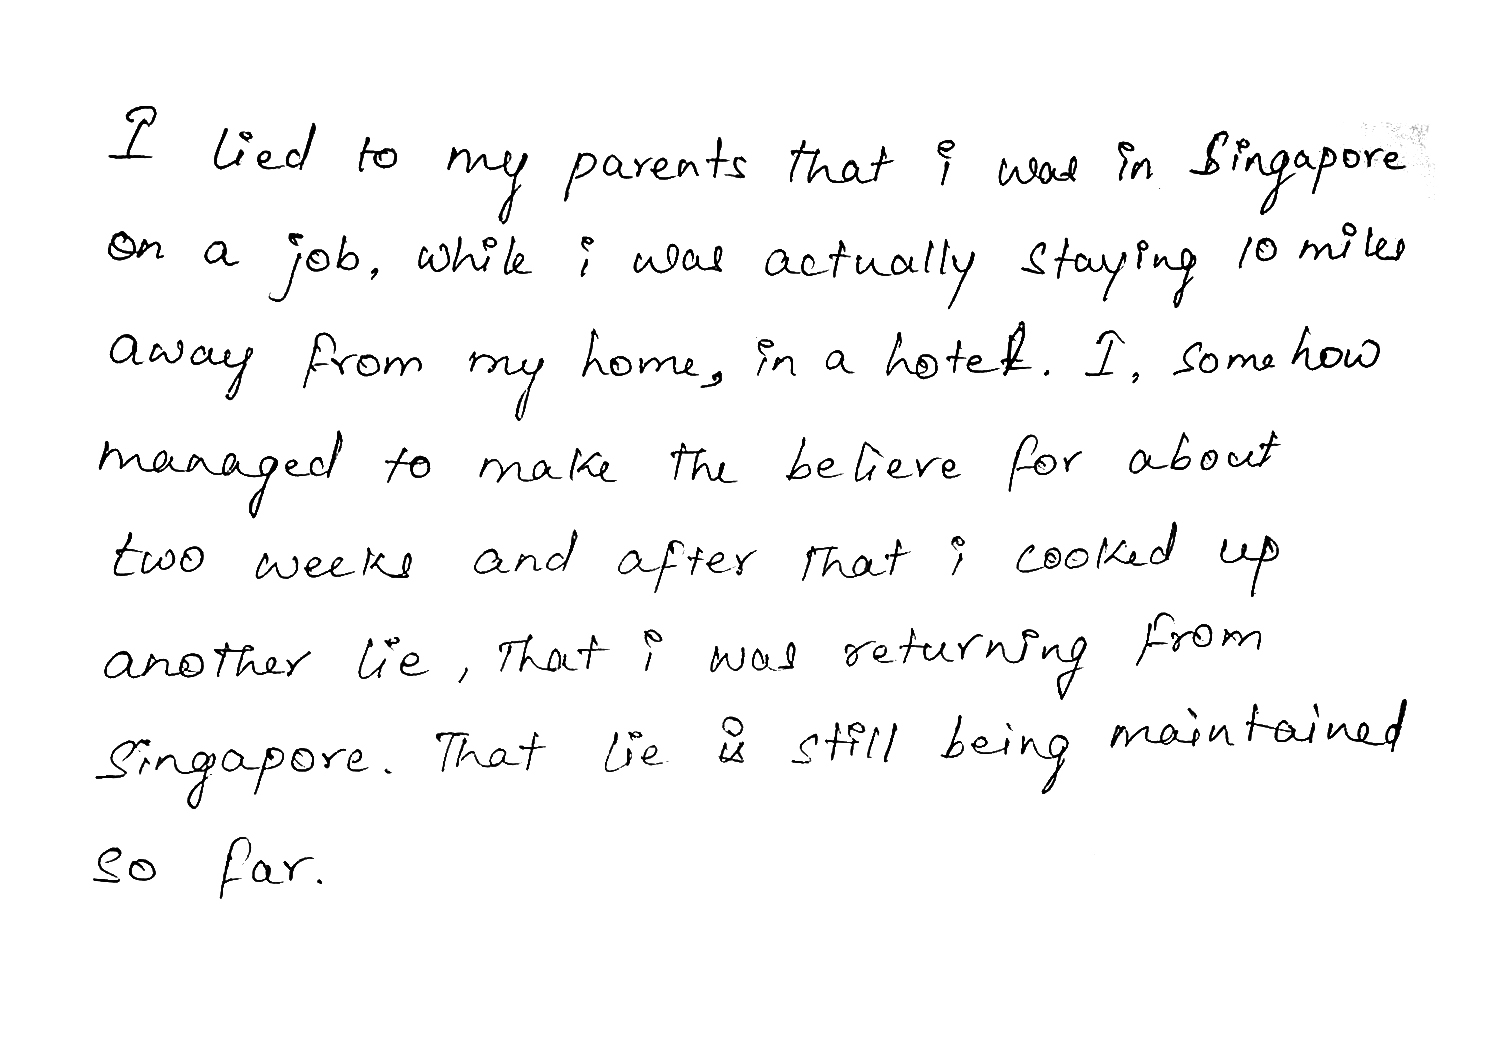 I lied to my parents that i was in Singapore
on a job, while i was actually staying 10 miles
away from my home, in a hotel. I, somehow
managed to make the believe for about
two weeks and after that i cooked up
another lie, that i was returning from
Singapore. That lie is still being maintained
so far.